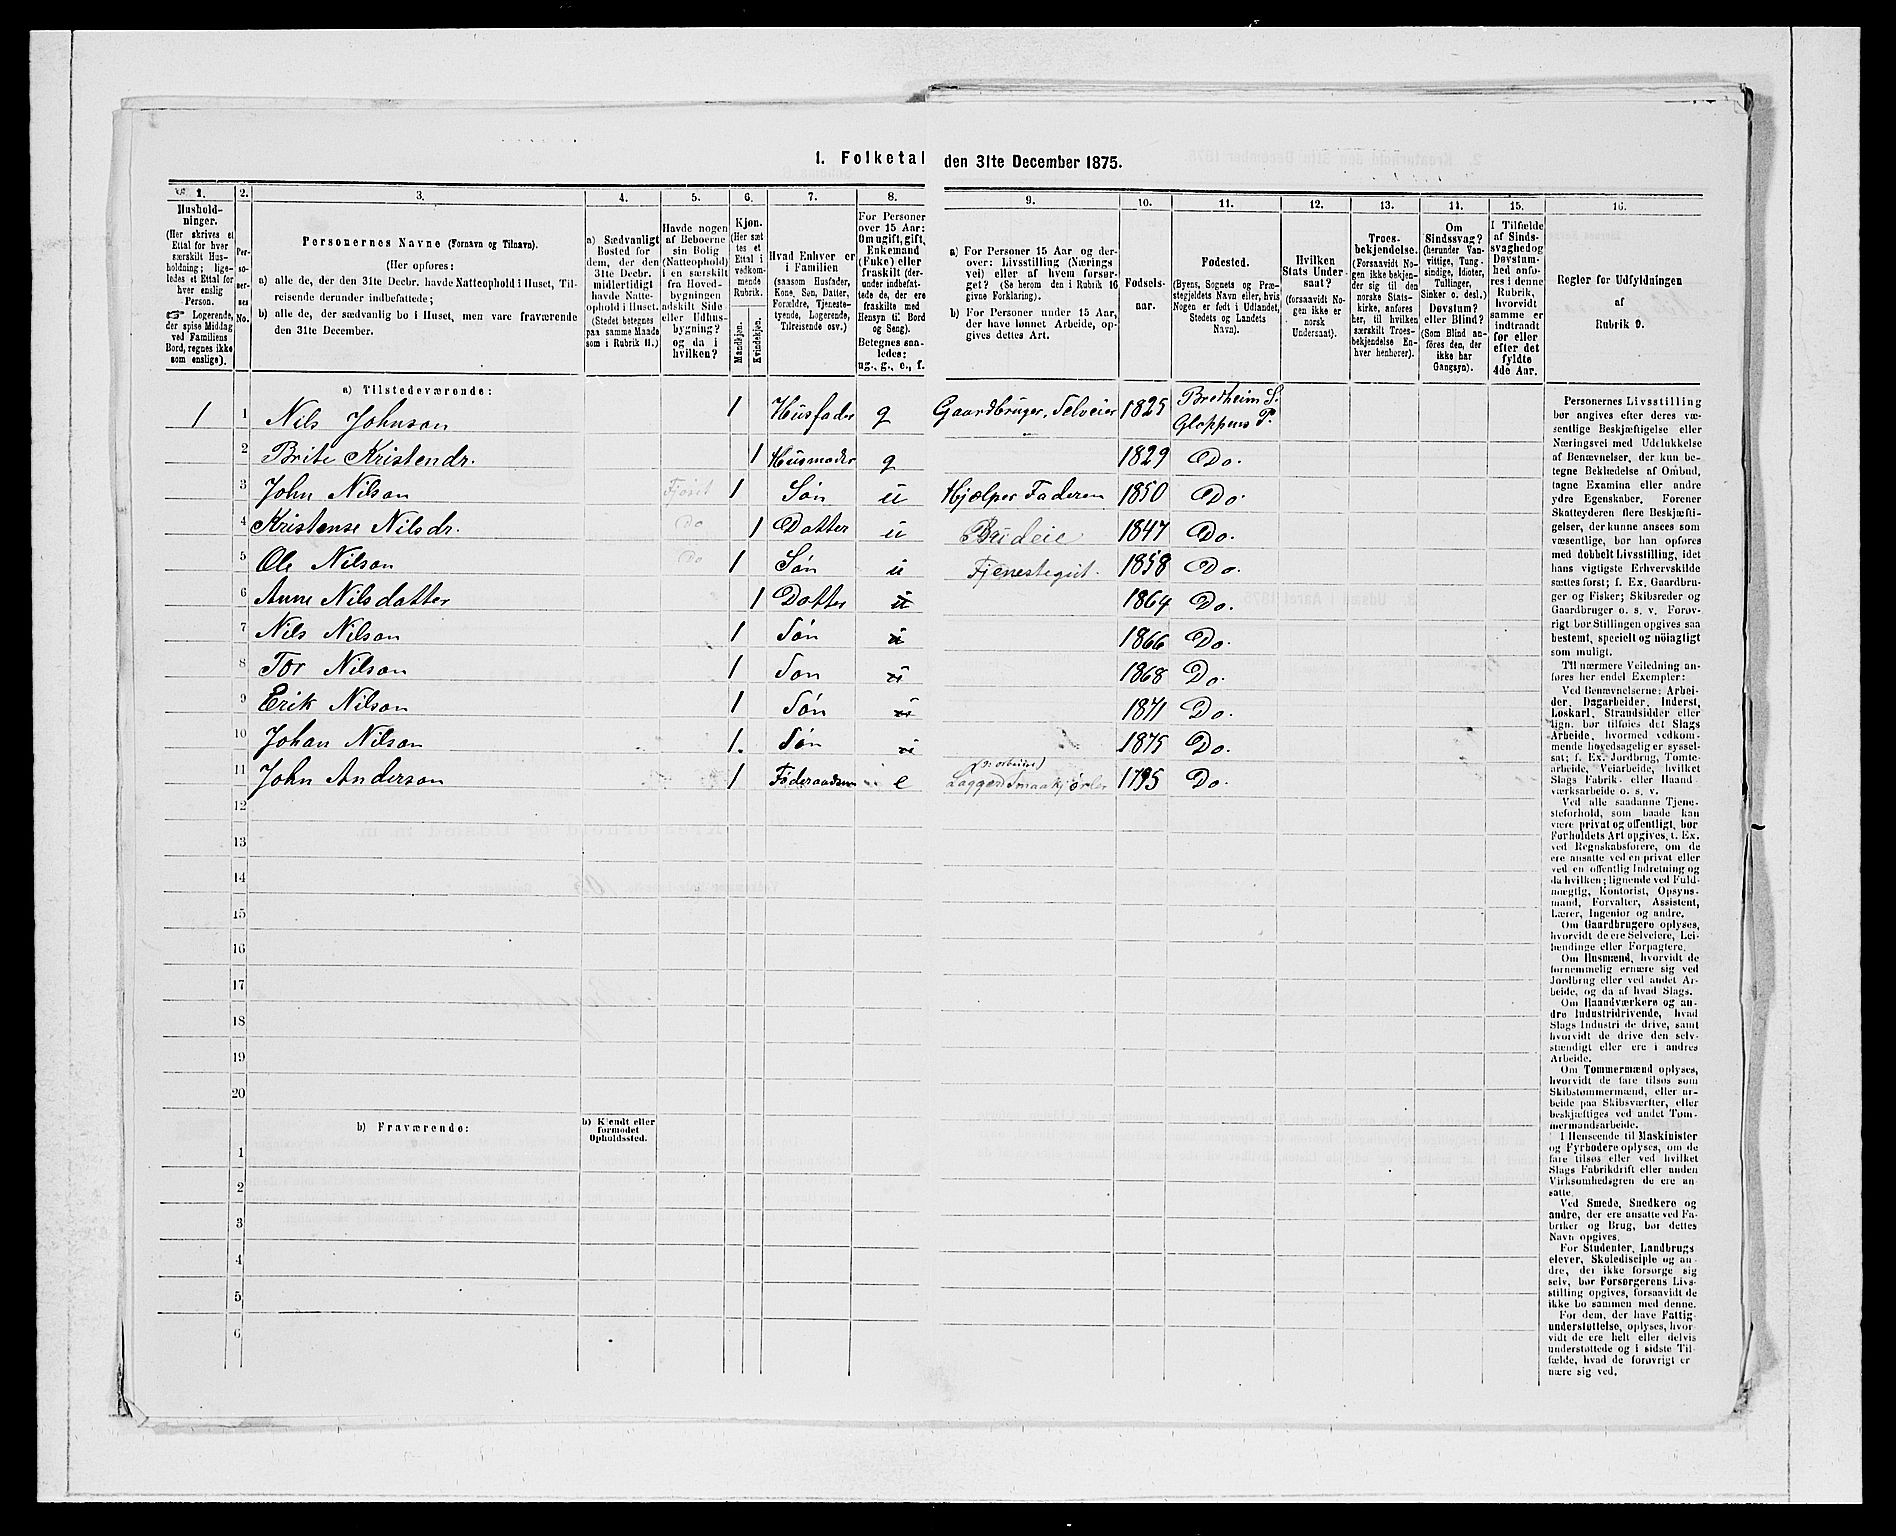 1. Folketal den 31te December 1875.
1. 2. 3. 4. 5. 6. 7. 8. 9. 10. 11. 12. 13. 14. 15. 16.
Hushold-
ninger.
(Her skrives et
Ettal for hver
særskilt Hus-
holdning; lige-
ledes et Ettal for
hver enslig
Person.
☞ Logerende,
der spise Middag
ved Familiens
Bord, regnes ikke
som enslige).
Per-
so-
ner-
nes
No.
Personernes Navne (Fornavn og Tilnavn).
(Her opføres:
a) alle de, der den 31te Decbr. havde Natteophold i Huset, Til-
reisende derunder indbefattede;
b) alle de, der sædvanlig bo i Huset, men vare fraværende
den 31te December.
a) Sædvanligt
Bosted for
dem, der den
31te Decbr.
midlertidigt
havde Natte-
ophold i Huset.
(Stedet betegnes
paa samme Maade
som i Rubrik 11.)
Havde nogen
af Beboerne
sin Bolig
(Natteophold)
i en særskilt
fra Hoved-
bygningen
adskilt Side-
eller Udhus-
bygning?
og da i
hvilken?
Kjøn.
(Her sæt
tes et
Ettal i
vedkom-
mende
Rubrik.
Mandkjøn.
Kvindekjøn.
Hvad Enhver er
i Familien
(saasom Husfader,
Kone, Søn, Datter,
Forældre, Tjeneste-
tyende, Logerende,
Tilreisende osv.)
For Personer
over 15 Aar:
Om ugift, gift,
Enkemand
(Enke) eller
fraskilt (der-
under indbefat-
tede de, der ere
fraskilte med
Hensyn til Bord
og Seng).
Betegnes saa-
ledes:
ug., g., e., f.
a) For Personer 15 Aar og der-
over: Livsstilling (Nærings
vei) eller af hvem forsør-
get? (Se herom den i Rubrik 16
givne Forklaring).
b) For Personer under 15 Aar,
der have lønnet Arbeide, op-
gives dettes Art.
Fødsels-
aar.
Fødested.
(Byens, Sognets og Præ-
stegjeldets Navn eller, hvis
Nogen er født i Udlandet,
Stedets og Landets
Navn).
Hvilken
Stats Under-
saat?
(forsaavidt No-
gen ikke er
norsk
Undersaat).
Troes-
bekjendelse.
(Forsaavidt No-
gen ikke bekjen-
der sig til den
norske Stats-
kirke, anføres
her, til hvilken
særskilt Troes-
bekjendelse En-
hver henhører).
Om
Sindssvag?
(herunder Van-
vittige, Tung-
sindige, Idioter,
Tullinger,
Sinker o. desl.)
Døvstum?
eller Blind?
(Som Blind an-
føres den, der
ikke har
Gangsyn).
I Tilfælde
af Sinds-
svaghed og
Døvstum-
hed anfø-
res i denne
Rubrik,
hvorvidt
samme er
indtraadt
før eller
efter det
fyldte
4de Aar.
Regler for Udfyldningen
af
Rubrik 9.
a) Tilstedeværende:
1 1 Nils Johnson 1 Husfader g Gaardbruger, Selveier 1825 Bredheim S. Gloppens P.
2 Brite Kristendr. 1 Husmoder g 1829 Do.
3 John Nilson Fjøset 1 Søn u Hjælper Faderen 1850 Do.
4 Kristense Nilsdr. Do 1 Datter u Budeie 1847 Do.
5 Ole Nilson Do 1 Søn u Tjenestegut. 1858 Do.
6 Anne Nilsdatter 1 Datter u 1864 Do.
7 Nils Nilson 1 Søn u 1866 Do.
8 Tor Nilson 1 Søn u 1868 Do.
9 Erik Nilson 1 Søn u 1871 Do.
10 Johan Nilson 1. Søn u 1875 Do.
11 John Anderson 1 Føderaadsm e Lagger Smaakjørler 1795 Do.
12
13
14
15
16
17
18
19
20
b) Fraværende:
b) Kjendt eller
formodet
Opholdssted.
1
2
3
4
5
6
Personernes Livsstilling
bør angives efter deres væ-
sentlige Beskjæftigelse eller
Næringsvei med Udelukkelse
af Benævnelser, der kun be-
tegne Beklædelse af Ombud,
tagne Examina eller andre
ydre Egenskaber. Forener
Skatteyderen flere Beskjæfti-
gelser, der kunne ansees som
væsentlige, bør han opføres
med dobbelt Livsstilling, idet
hans vigtigste Erhvervskilde
sættes først; f. Ex. Gaardbru-
ger og Fisker; Skibsreder og
Gaardbruger o. s. v. Forøv-
rigt bør Stillingen opgives saa
bestemt, specielt og nöiagtigt
som muligt.
Til nærmere Veiledning an-
føres her endel Exempler:
Ved Benævnelserne: Arbei-
der, Dagarbeider, Inderst,
Løskarl, Strandsidder eller
lign. bør tilføies det Slags
Arbeide, hvormed vedkom-
mende hovedsagelig er syssel-
sat; f. Ex. Jordbrug, Tomte-
arbeide, Veiarbeide, hvilket
Slags Fabrik- eller Haand-
værksarbeide o. s. v.
Ved alle saadanne Tjene-
steforhold, som baade kan
være privat og offentligt, bør
Forholdets Art opgives, t. Ex.
ved Regnskabsførere, om de
ere ansatte ved en privat eller
ved en offentlig Indretning og
da hvilken; lignende ved Fuld-
mægtig, Kontorist, Opsyns-
mand, Forvalter, Assistent,
Lærer, Ingeniør og andre.
Om Gaardbrugere oplyses,
hvorvidt de ere Selveiere, Lei-
lændinge eller Forpagtere.
Om Husmænd, hvorvidt de
fornemmelig ernære sig ved
Jordbrug eller ved andet Ar-
beide, og da af hvad Slags.
Om Haandværkere og an-
dre Industridrivende, hvad
Slags Industri de drive, samt
hvorvidt de drive den selv-
stændigt eller ere i andres
Arbeide.
Om Tømmermænd oplyses,
hvorvidt de fare tilsøs som
Skibstømmermænd, eller ar-
beide paa Skibsværfter, eller
beskjæftiges ved andet Tøm-
mermandsarbeide.
I Henseende til Maskinister
og Fyrbødere oplyses, om de
fare tilsøs eller ved hvilket
Slags Fabrikdrift eller anden
Virksomhedsgren de ere an-
satte.
Ved Smede, Snedkere og
andre, der ere ansatte ved Fa-
briker og Brug, bør dettes
Navn opgives.
For Studenter, Landbrugs-
elever, Skoledisciple og an-
dre, der ikke forsørge sig
selv, bør Forsørgerens Livs-
stilling opgives, forsaavidt de
ikke bo sammen med denne.
For dem, der have Fattig-
understøttelse, oplyses, hvor-
vidt de ere helt eller delvis
understøttede og i sidste Til-
fælde, hvad de forøvrigt er-
nære sig ved.